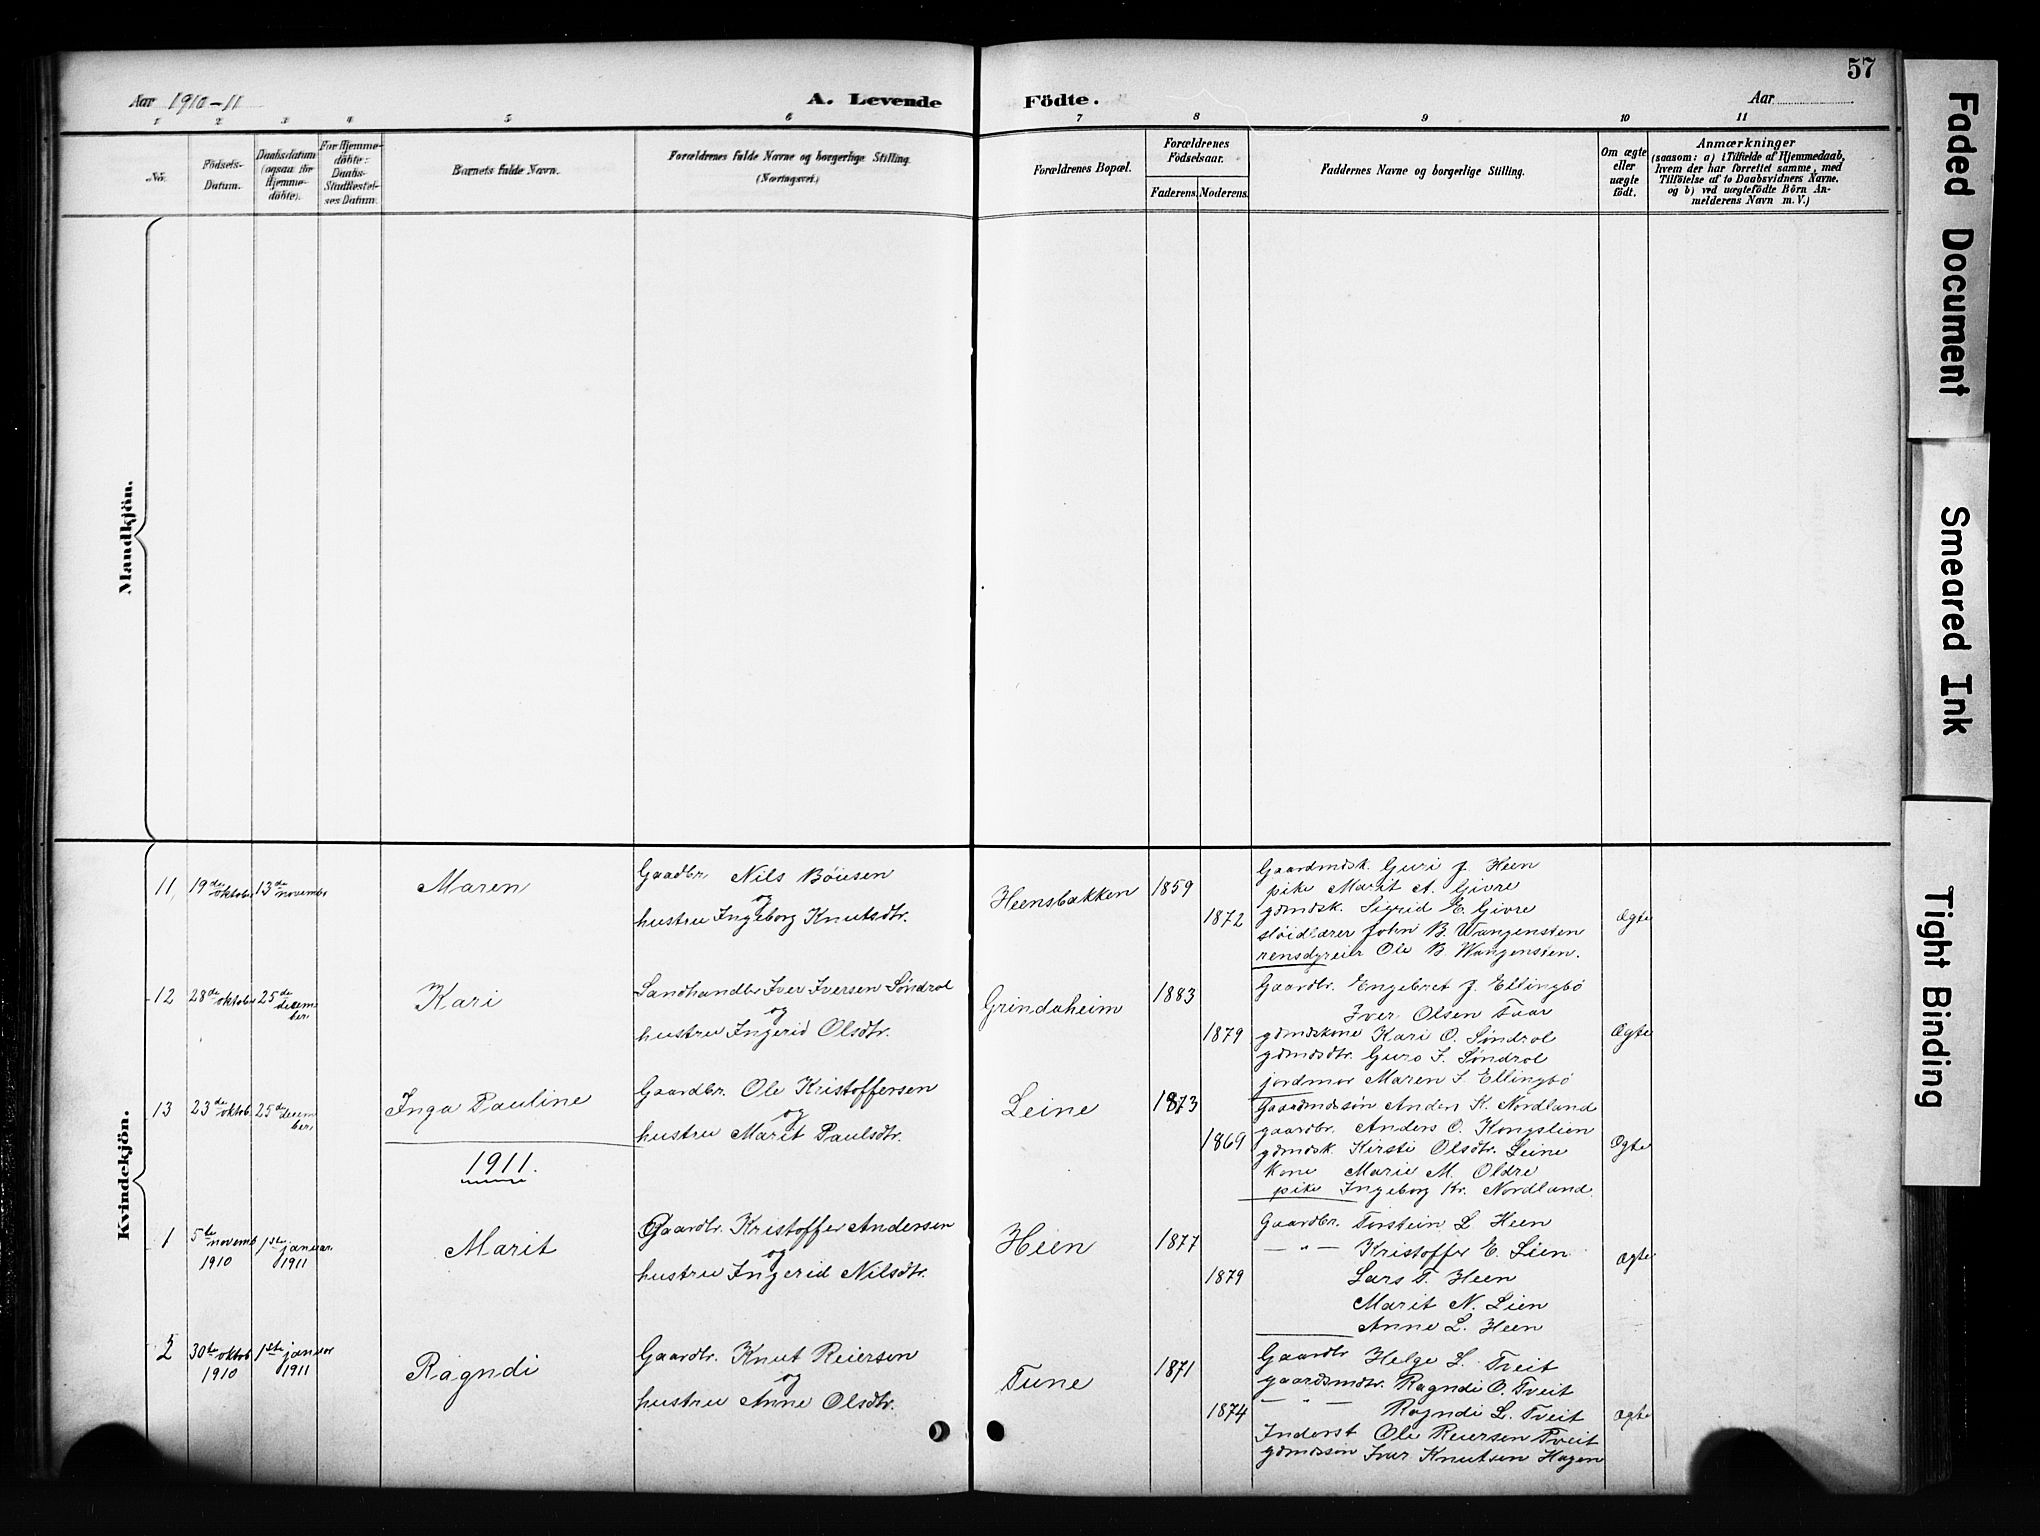 57
Aar 1910-11
A. Levende Födte.
Aar
1 2 3 4 5 6 7 8 9 10 11
No.
Födsels-
Datum.
Daabsdatum
(ogsaa for
Hjemme-
döbte).
For Hjemme-
döbte:
Daabs-
Stadfæstel-
ses Datum.
Barnets fulde Navn.
Forældrenes fulde Navne og borgerlige Stilling.
(Næringsvei.)
Forældrenes Bopæl.
Forældrenes
Födselsaar.
Faderens. Moderens.
Faddernes Navne og borgerlige Stilling.
Om ægte
eller
uægte
födt.
Anmærkninger
(saasom: a) i Tilfælde af Hjemmedaab,
hvem der har forrettet samme, med
Tilföielse af to Daabsvidners Navne.
og b) ved uægtefödte Börn An-
melderens Navn m. V.)
Mandkjön.
Kvindekjön.
11 19de oktober 13de november
Maren
Gaadbr. Nils Böiesen
og
hustru Ingeborg Knutsdtr.
Heensbakken
1859
1872
Gaardmdsk. Guri J. Heen
pike Marit A. Givre
gdmdsk. Sigrid E. Givre
sløidlærer John B. Wangensten
rensdyreier Ole B. Wangensten.
Ægte
12 28de oktober 25de decem
ber.
Kari
Landhandler Iver Iversen Søndrol
og
hustru Ingerid Olsdtr.
Grindaheim
1883
1879
Gaardbr. Engebret J. Ellingbø
Iver Olsen Kvar
gdmdskone Kari O. Søndrol
gdmdsdtr. Guro I. Søndrol
jordmor Maren I. Ellingbø
Ægte
13 23de oktob. 25de decem
ber.
Inga Pauline
Gaardbr. Ole Kristoffersen
og
hustru Marit Paulsdtr.
Leine
1873
1869
Gaardmdssøn Anders K. Nordland
gaardbr. Anders O. Kongslien
gdmdsk. Kirsti Olsdtr. Leine
Kone Marie M. Oldre
pike Ingeborg Kr. Nordland
Ægte
1911.
1 5te novemb 1ste januar
1910 1911
Marit
Gaardbr. Kristoffer Andersen
og
hustru Ingerid Nilsdtr.
Heen
1877
1879
Gaardbr. Torstein L. Heen
— " — Kristoffer E. Lien
Lars T. Heen
Marit N. Lien
Anne L. Heen
Ægte
2 30te oktob. 1ste januar
1910 1911
Ragndi
Gaardbr. Knut Reiersen
og
hustru Anne Olsdtr.
Tune
1871
1874
Gaardbr Helge L. Tveit
gaardsmdtr. Ragndi O. Tveit
— " — Ragndi L. Tveit
Inderst Ole Reiersen Tveit
gdmdssøn Ivar Knutsen Hagen
Ægte
Faded Document
Smeared Ink
Tight Binding